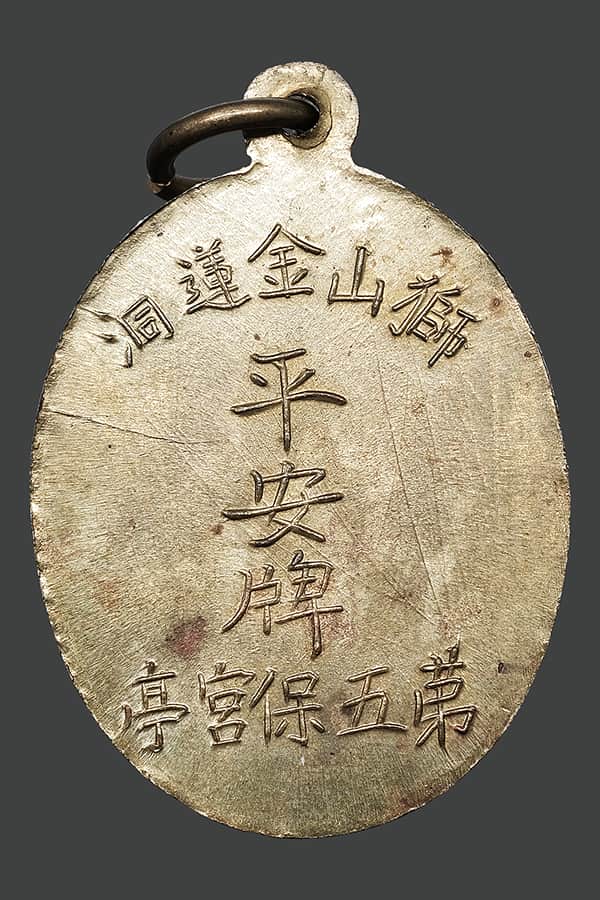 獅山金蓮洞
平
安
牌
苐五保宮亭